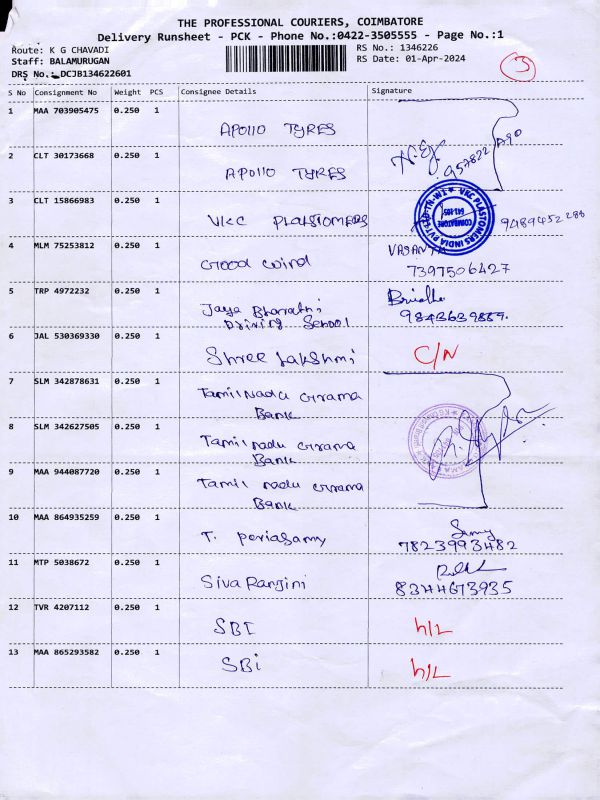 THE PROFESSIONAL COURIERS, COIMBATORE
Delivery Runsheet - PCK - Phone No.:0422-3505555 - Page No.:1
Route: K G CHAVADI
RS No.: 1346226
Staff: BALAMURUGAN
RS Date: 01-Apr-2024
3
DRS No.: DCJB134622601
S No Consignment No Weight PCS Consignee Details Signature
1 MAA 703905475 0.250 1 APOLLO TYRES
2 CLT 30173668 0.250 1 APOLLO TYRES
3 CLT 15866983 0.250 1 VKC PLASTOMERS 9489452288
VKC PLASTOMERS INDIA PVT LTD
COIMBATORE
641-105
4 MLM 75253812 0.250 1 Good wind VASANTH
7397506427
5 TRP 4972232 0.250 1 Jaya Bharathi
Driving School
6 JAL 530369330 0.250 1 Shree Lakshmi C/N
7 SLM 342878631 0.250 1 Tamil Nadu Grama
Bank
8 SLM 342627505 0.250 1 Tamil nadu Grama
Bank
9 MAA 944087720 0.250 1 Tamil nadu Grama
Bank
10 MAA 864935259 0.250 1 T. periasamy Samy
7823993482
11 MTP 5038672 0.250 1 Siva Ranjini
8344673935
12 TVR 4207112 0.250 1 SBI h/L
13 MAA 865293582 0.250 1 SBi h/L